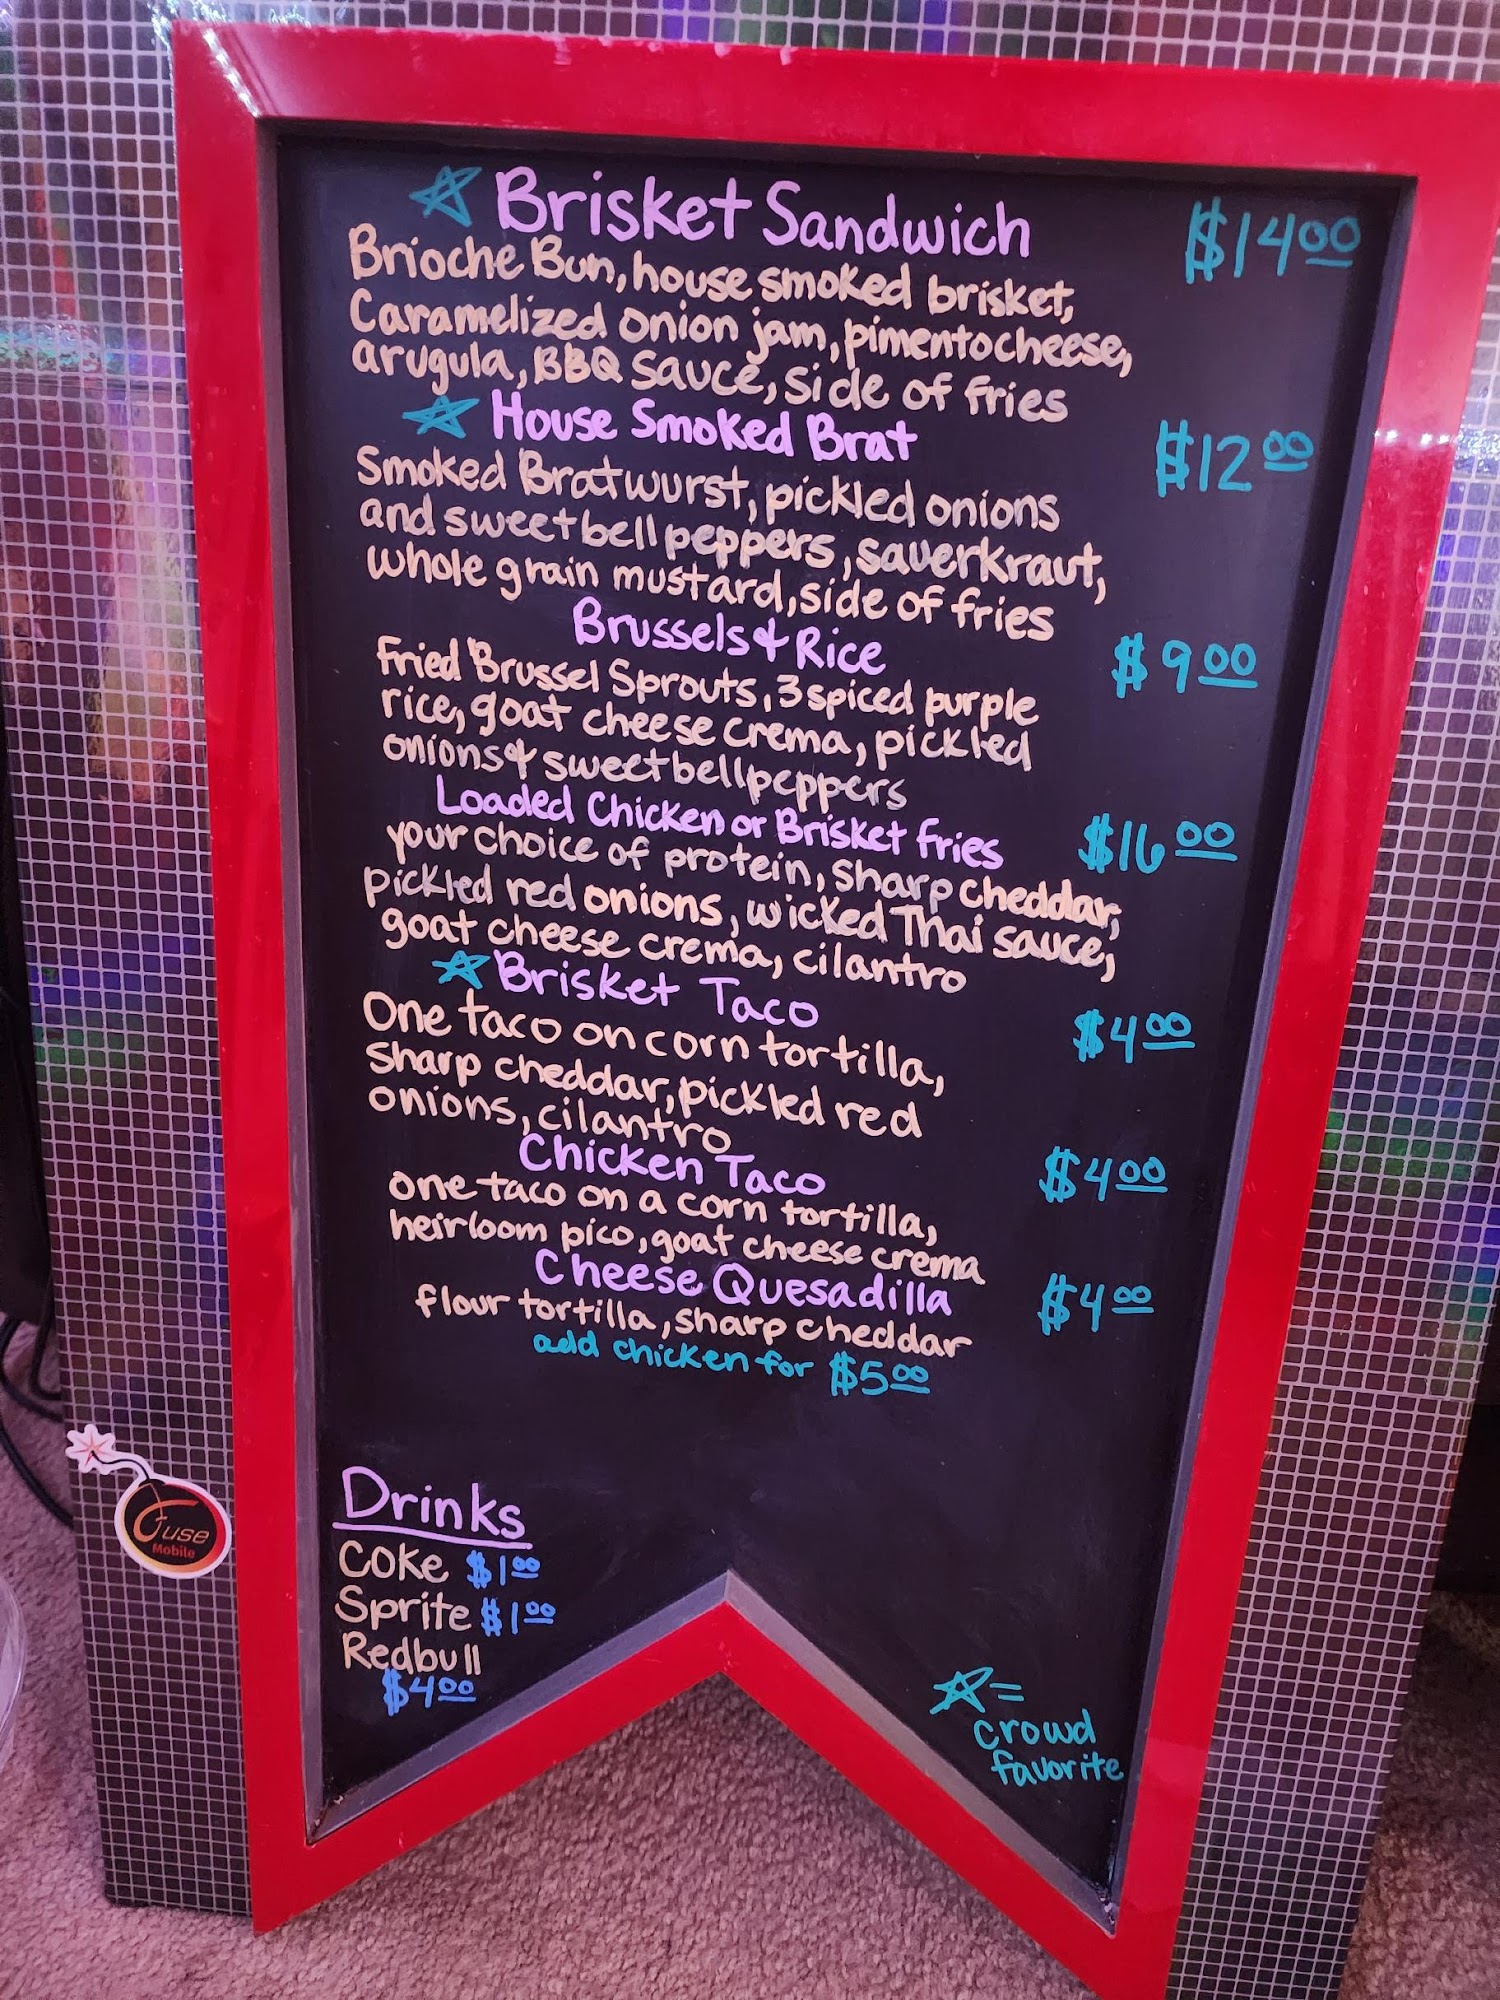 ☆ Brisket Sandwich $14.00
Brioche Bun, house smoked brisket,
Caramelized onion jam, pimento cheese,
arugula, BBQ sauce, side of fries
☆ House Smoked Brat $12.00
Smoked Bratwurst, pickled onions
and sweet bell peppers, sauerkraut,
whole grain mustard, side of fries
Brussels & Rice $9.00
Fried Brussel Sprouts, 3 spiced purple
rice, goat cheese crema, pickled
onions & sweet bell peppers
Loaded Chicken or Brisket fries $16.00
your choice of protein, sharp cheddar,
pickled red onions, wicked Thai sauce,
goat cheese crema, cilantro
☆ Brisket Taco $4.00
One taco on corn tortilla,
sharp cheddar, pickled red
onions, cilantro
Chicken Taco $4.00
one taco on a corn tortilla,
heirloom pico, goat cheese crema
Cheese Quesadilla $4.00
flour tortilla, sharp cheddar
add chicken for $5.00
Drinks
Coke $1.00
Sprite $1.00
Redbull
$4.00
☆ =
crowd
favorite
Fuse
Mobile